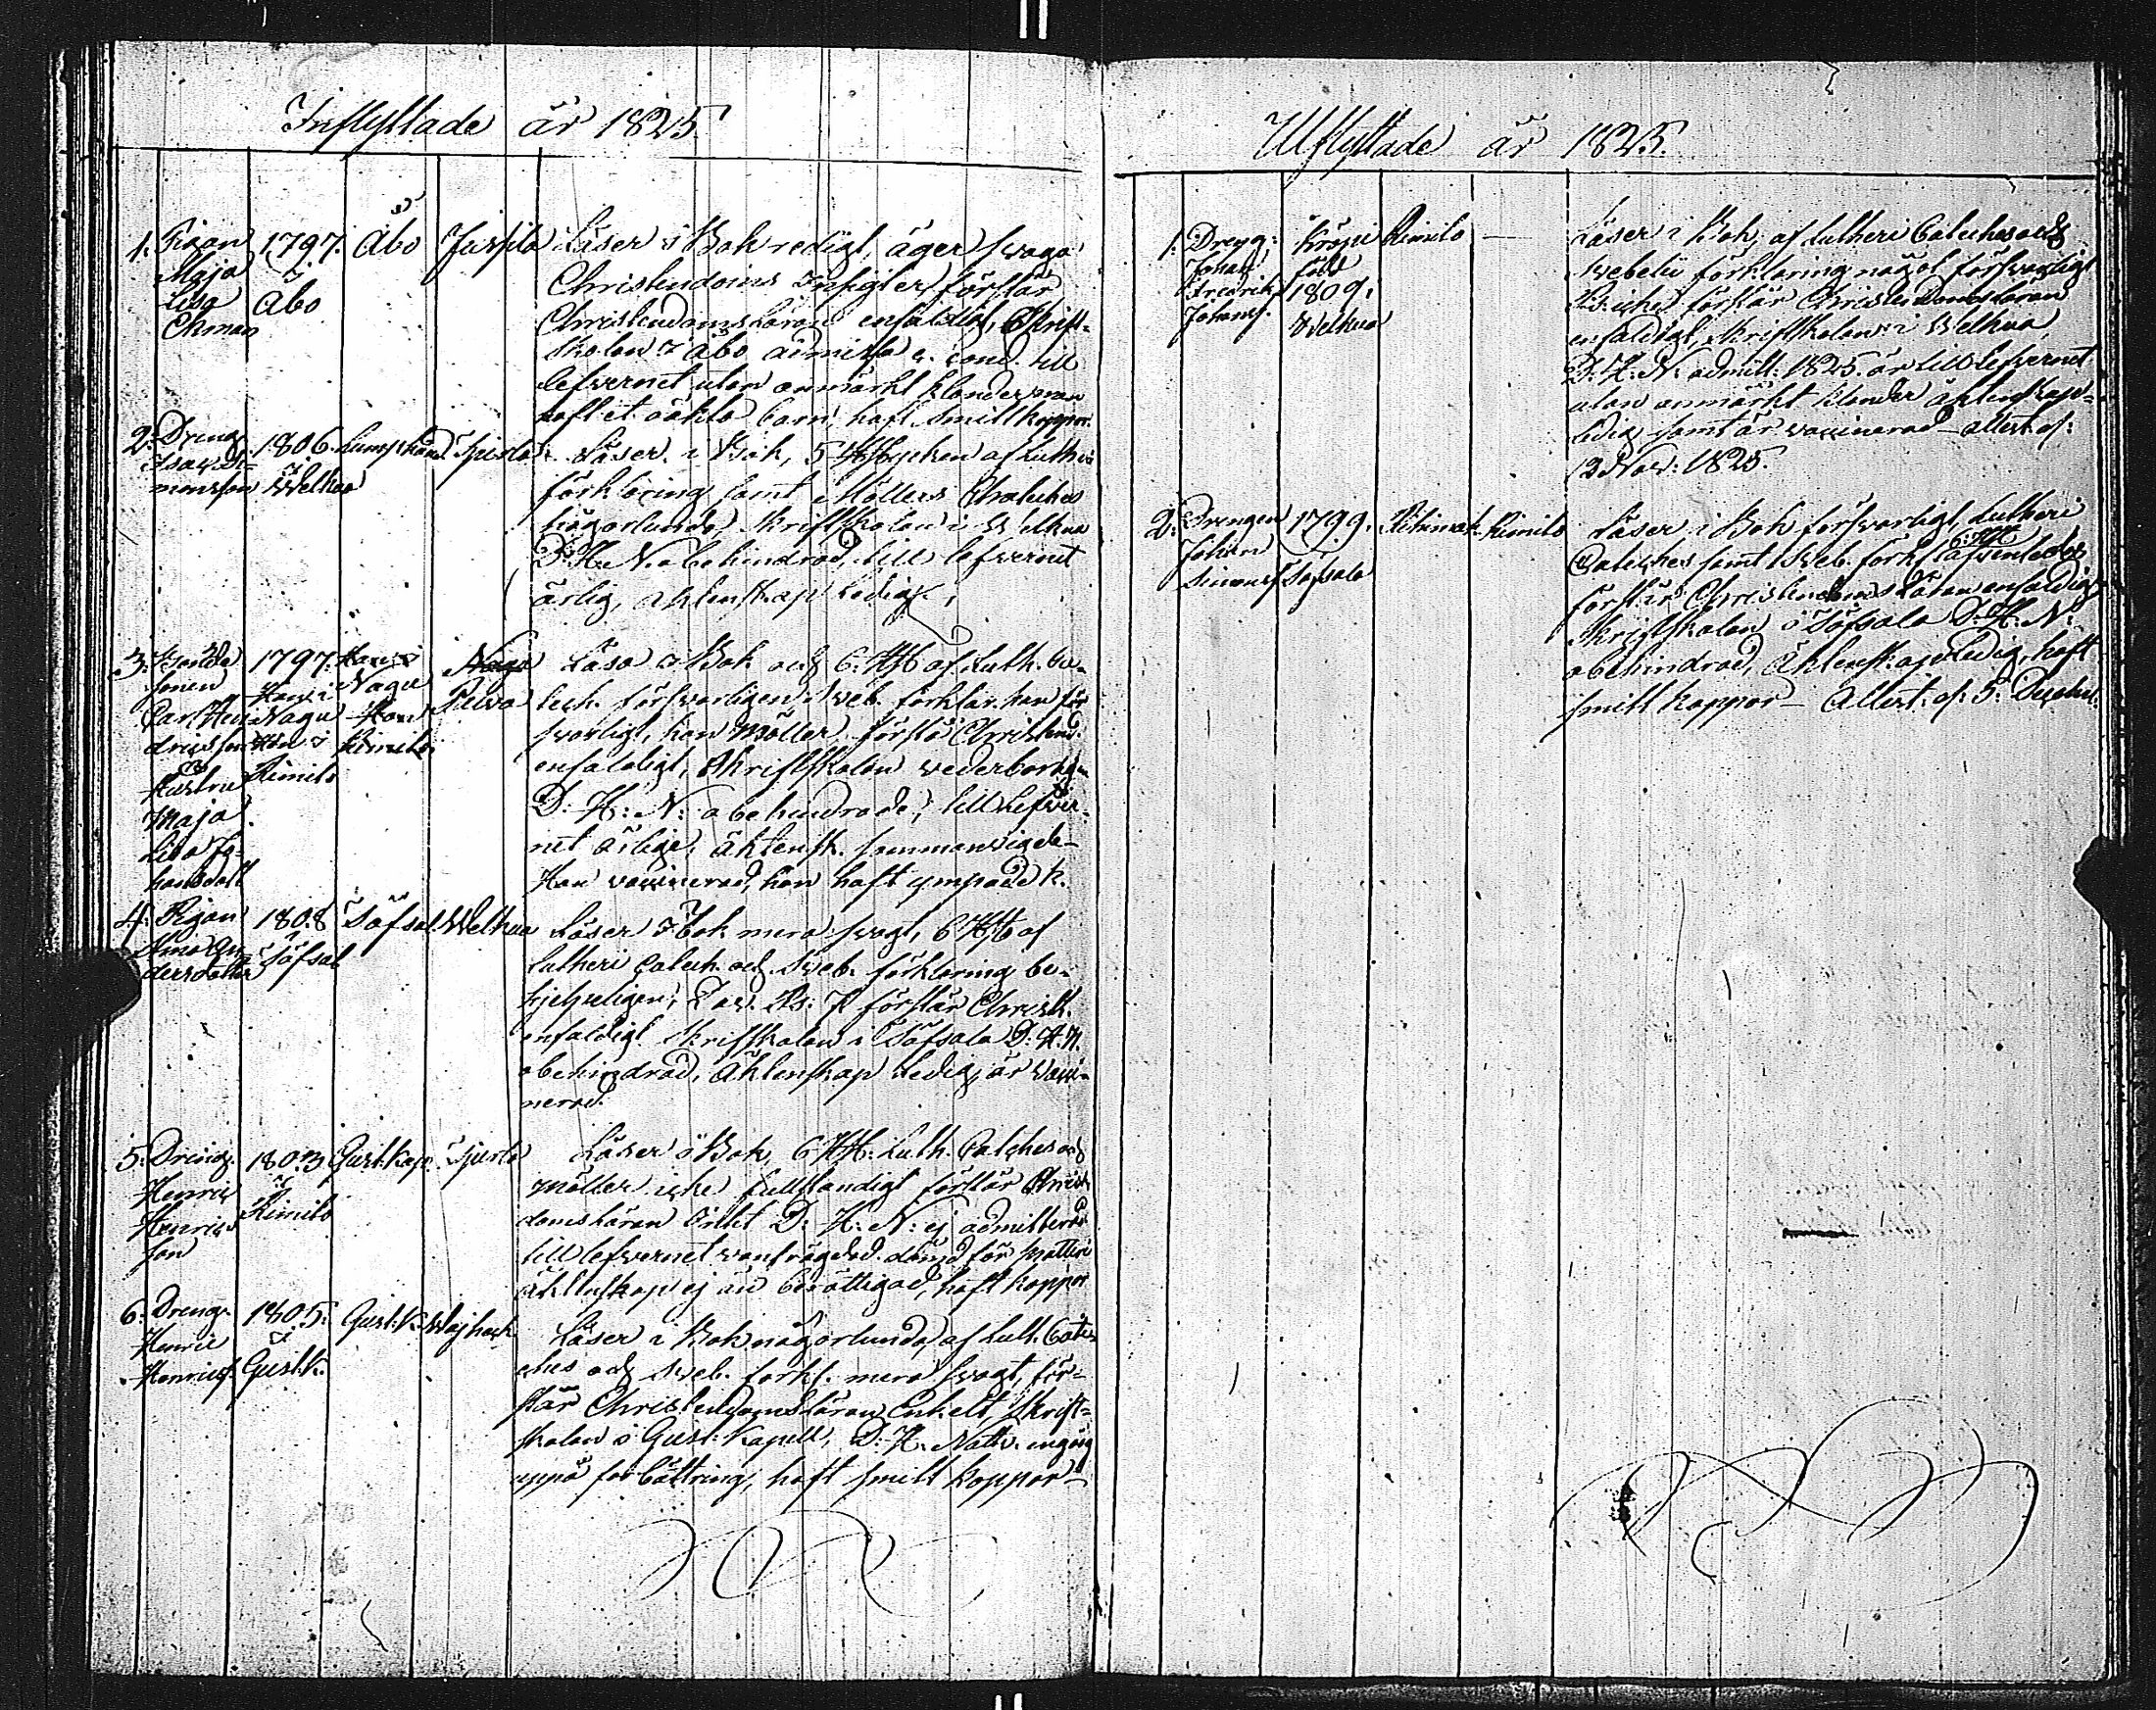 Inflyttade år 1825
1. Pigan
Maja
Lisa
Ekman
1797.
i
Åbo
Åbo
Läser i Bok redigt, äger svaga
Christendoms insigter, förstår
Christendomsläran enfaldigt, Skrift-
skolan i Åbo admitta c. cond. till
lefvernet utan anmärkt klander, men
haft et oäkta barn, haft Smittkoppor.
2. Dreng
Isac Si-
monsson
1806.
i
Welkua
Läser i Bok, 5 HSt af Lutheri
förklaring samt Möllers Cateches
någorlunda Skriftskolan i Welkua
D. H. N. obehindrad, till lefvernet
ärlig, Äktenskap Ledig.
3. Bonde
sonen
Carl Hen
dricsson
Hustru
Maja
Lisa Jo-
hansdott
1797.
Han i
Nagu
Hon i
Rimito
Han i
Nagu
Hon
Rimito
Läsa i Bok och 6. HSt af Luth. Ca-
tech. försvarligen, Sveb. förklar. han för
svarligt, hon Möller förstå Christend.
enfaldigt, Skriftskolan vederbörlig
D. H: N: obehindrade, till Lefver-
net ärlige, äktensk. sammanvigde
Han vaccinerad, hon haft ympade k.
4. Pigan
Anna An-
dersdotter
1808
i
Töfsal
Töfsal
Welkua
Läser i Bok mera svagt, 6 HSt af
Lutheri Catech. och Sveb. förklaring be-
hjelpeligen, Dav. Ps: 7 förstår Christl.
enfaldigt Skriftskolan i Töfsala D: H. N.
obehindrad, Äktenskap Ledig, är Vacci-
nerad.
5. Dreng.
Henric
Henrics
son
1803
i
Rimito
Gust. Kap.
Läser i Bok, 6 HSt. Luth. Catches och
Möller icke fullständigt förstår Christen
domsläran D: H: N: ej admitterad
till lefvernet
äktenskap ej än berättigad, haft koppor
6. Dreng.
Henric
Henricss.
1805.
i
Gust. K.
Gust. K.
Läser i Bok någorlunda, af Luth. Cate-
ches och Sveb. förkl. mera svagt, för-
står Christendomsläran Enkelt, Skrift-
skolan i Gust. Kapell, D: H. Nattv.
uppå förbättring, haft Smitt koppor
Utflyttade år 1825.
1. Dreng.
Johan
Fredrik
Johanss.
född
1809.
Welkua
Rimito
Läser i Bok, af Lutheri Cateches och
Svebelii förklaring något försvarligt
förstår Christendomsläran
enfaldigt, Skriftskolan i Welkua
D. H: N. admitt. 1825. är till Lefvernet
utan anmärkt klander Äktenskap
ledig samt är vaccinerad attest. af:
12 Nov: 1825.
2. Drengen
Johan
Simonss.
1799.
Töfsala
Rimito
Läser i Bok försvarligt, Lutheri
Cateches samt Sveb. förkl.
förstår Christendoms Läran enfaldigt
Skriftskolan i Töfsala D: H. N:
obehindrad, Äktensk. ledig, haft
smitt koppor — Attest. af. 5.